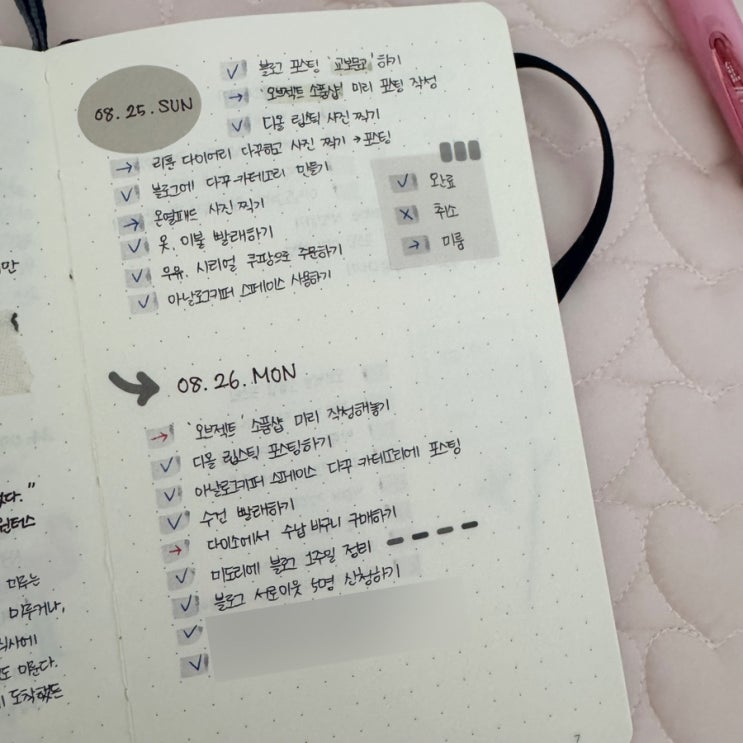 08.25.SUN
✓ 블로그 포스팅 '교보문고' 하기
→ '오브젝트 소품샵' 미리 포스팅 작성
✓ 디올 립스틱 사진 찍기
→ 리훈 다이어리 다꾸하고 사진 찍기 → 포스팅
✓ 블로그에 다꾸 카테고리 만들기
→ 온열패드 사진 찍기
✓ 옷, 이불 빨래하기
✓ 우유, 시리얼 쿠팡으로 주문하기
✓ 아날로그키퍼 스페이스 사용하기
✓ 완료
x 취소
→ 미룸
08.26.MON
→ '오브젝트' 소품샵 미리 작성해놓기
✓ 디올 립스틱 포스팅하기
✓ 아날로그키퍼 스페이스 다꾸 카테고리에 포스팅
✓ 수건 빨래하기
→ 다이소에서 수납 바구니 구매하기
✓ 미도리에 블로그 1주일 정리
✓ 블로그 서로이웃 5명 신청하기
✓
✓
만
다."
원터스
미루는
미루거나,
식사에
도 미룬다.
도착했드
7